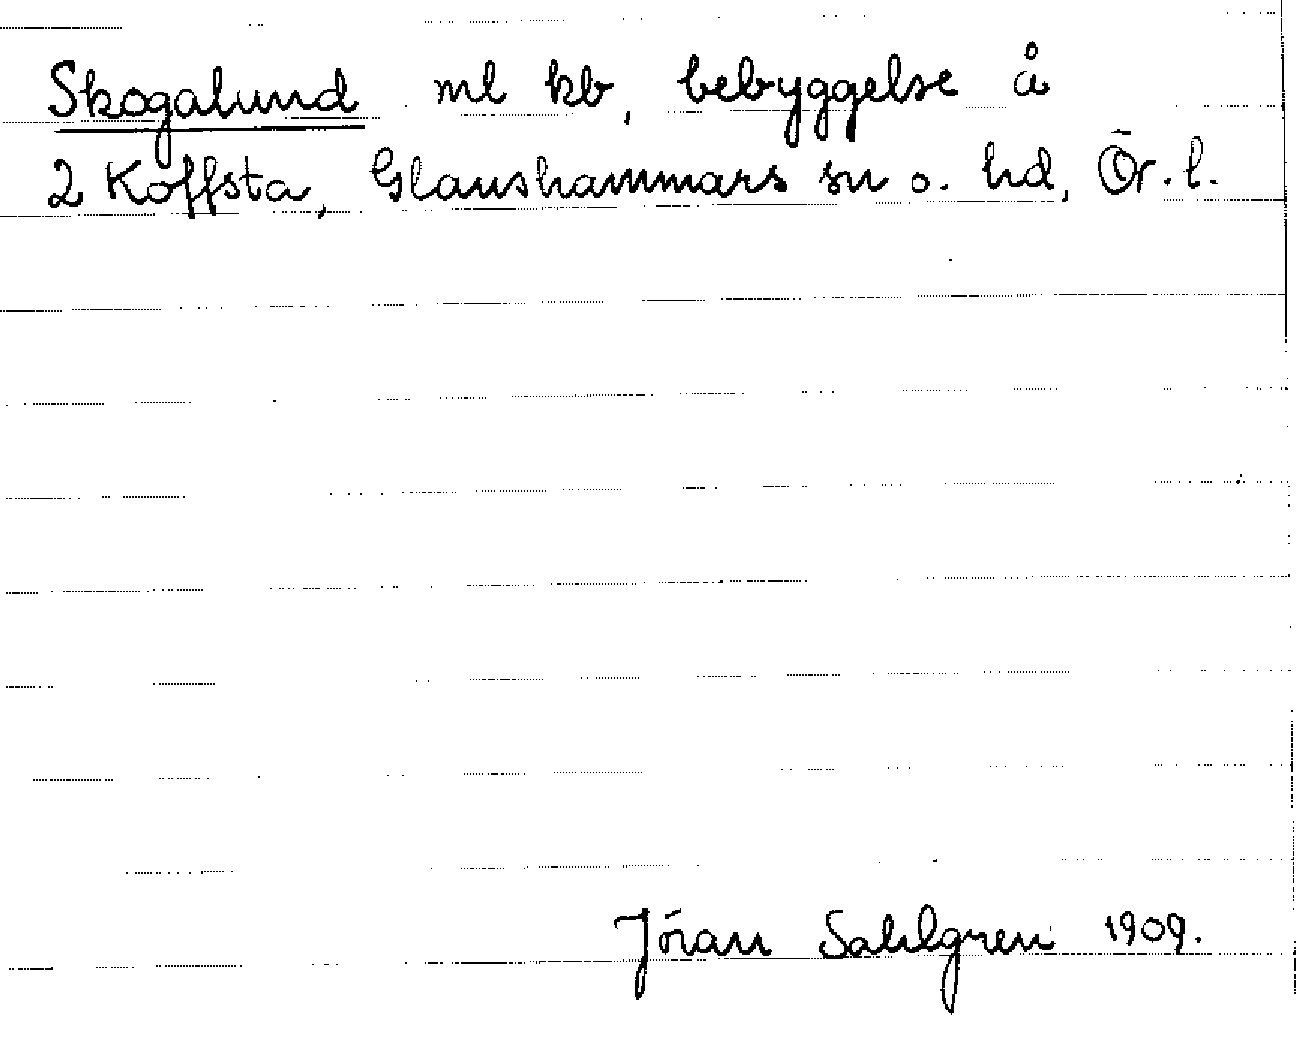 Skogalund ml kb, bebyggelse å
2 Koffsta, Glanshammars sn o. hd, Ör. l.
Jöran Sahlgren 1909.